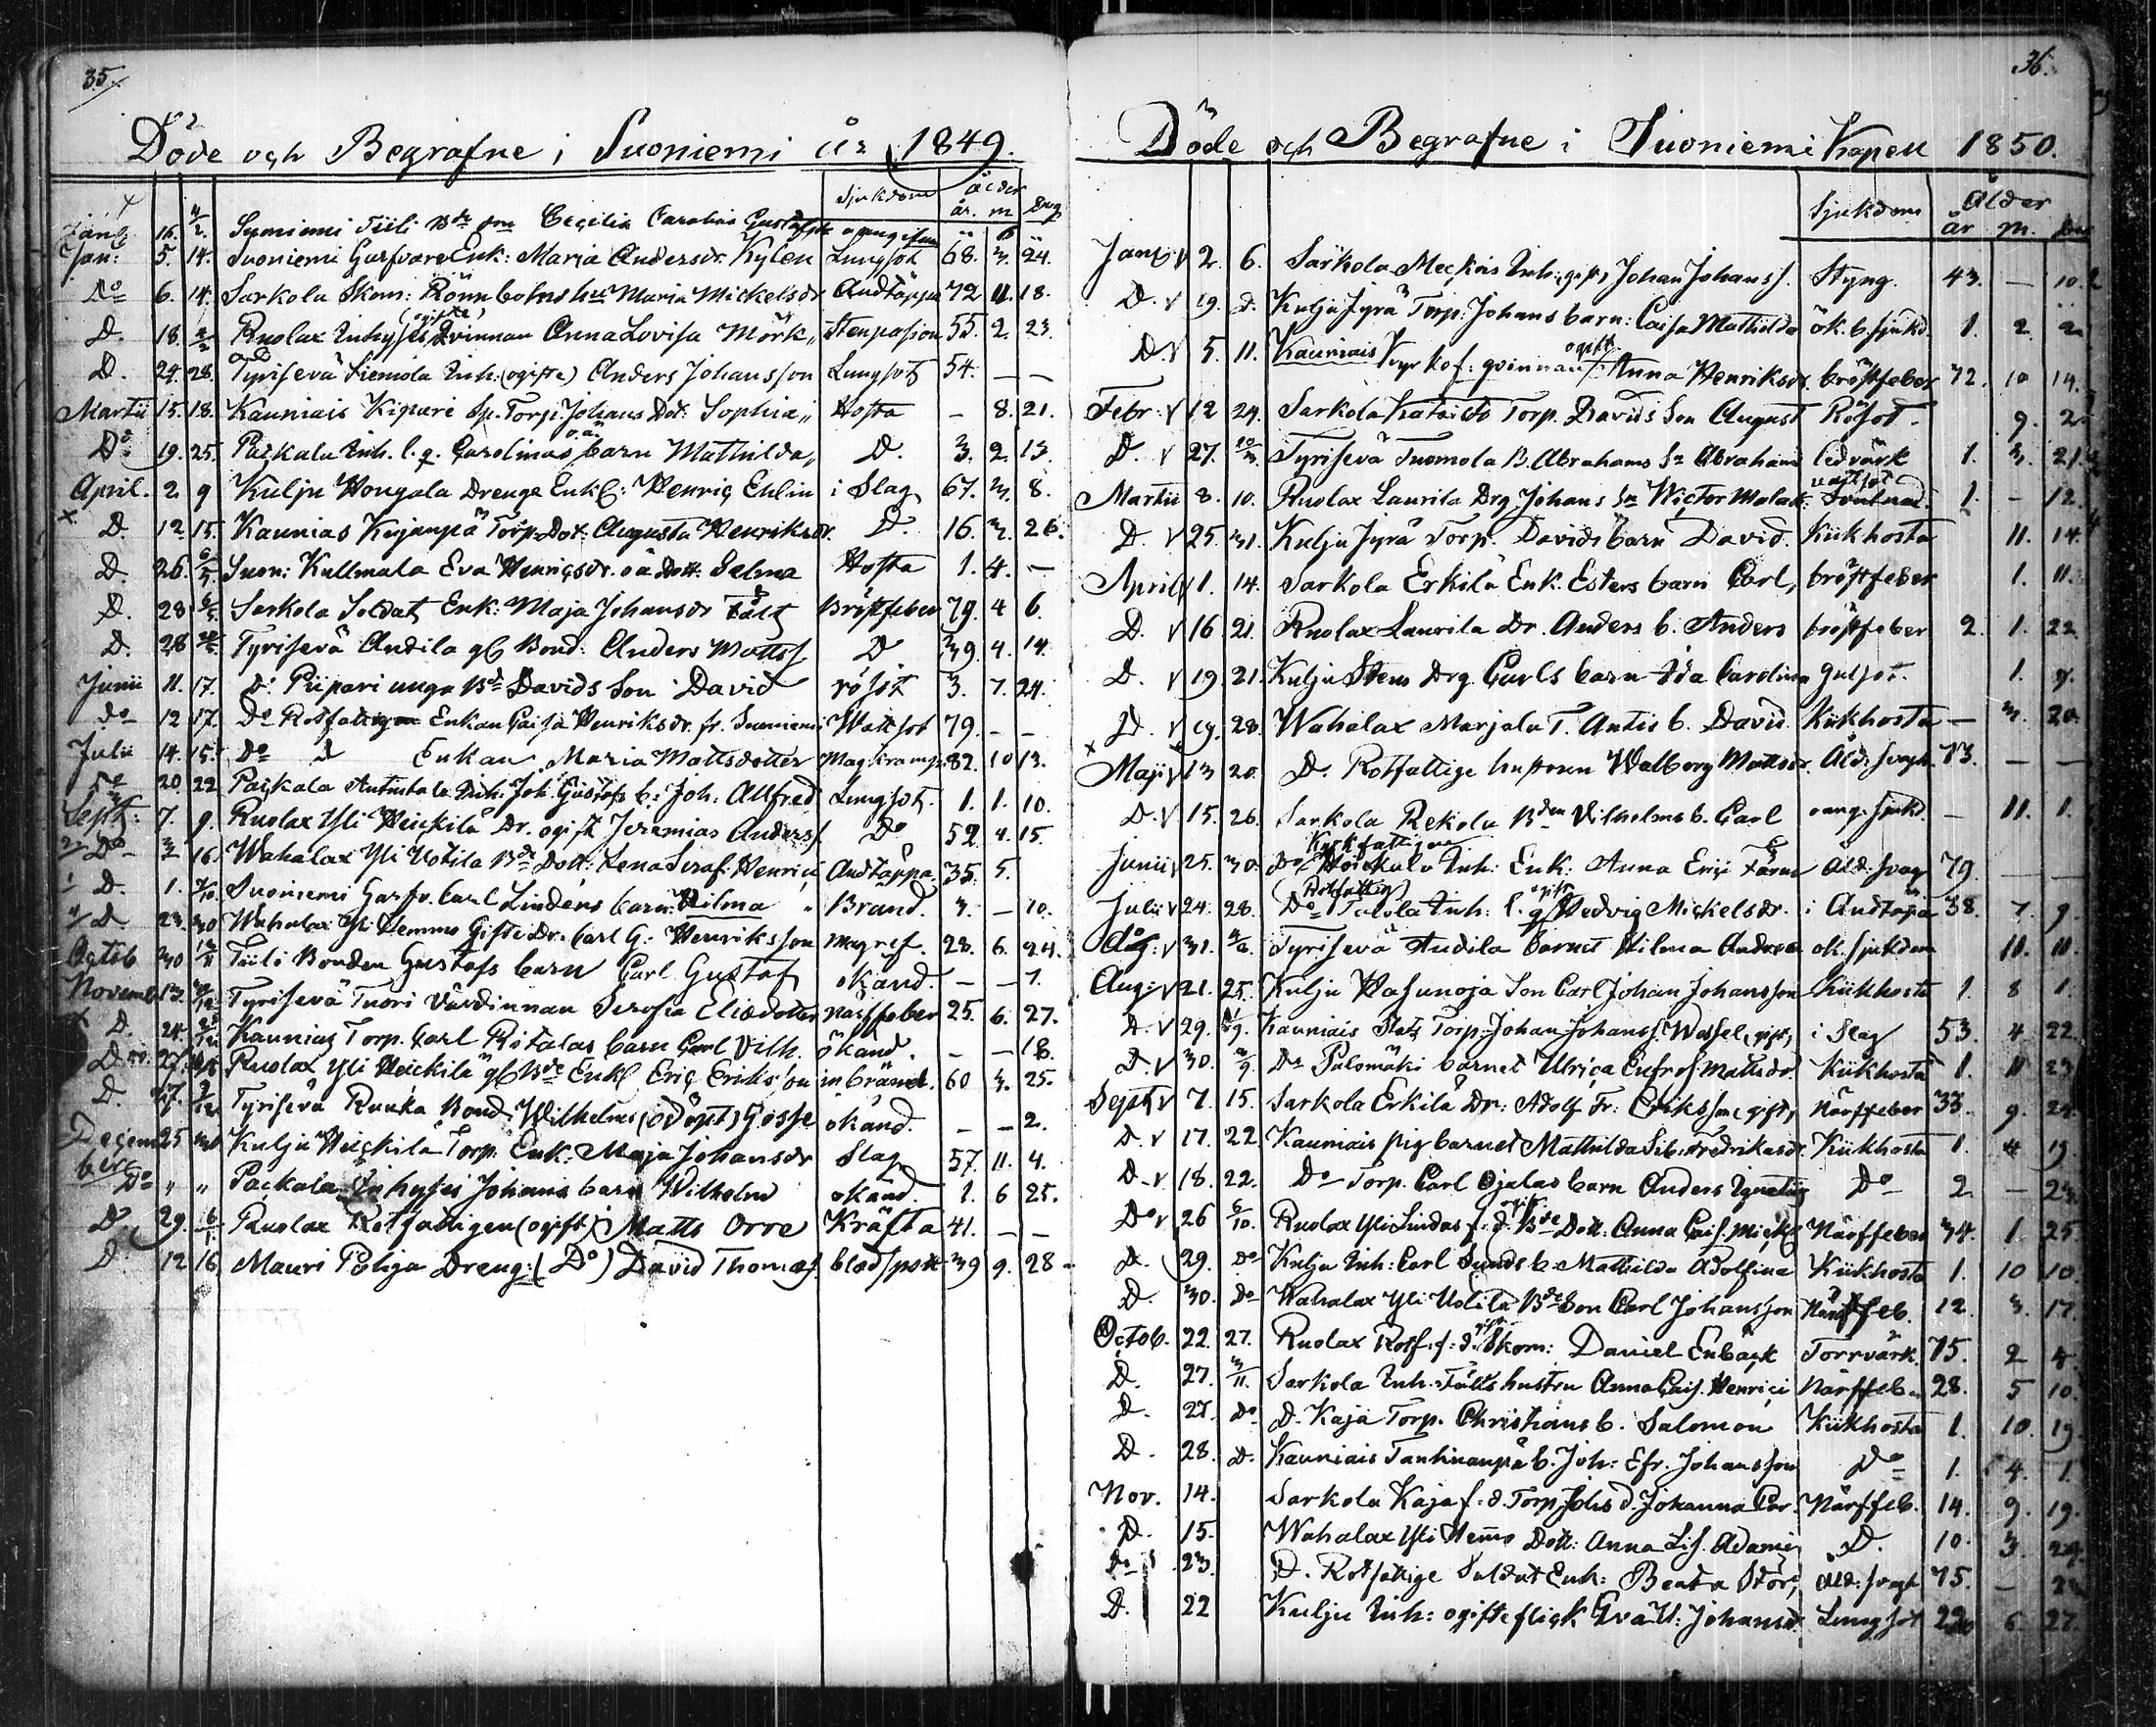 35.
Döde och Begrafne i Suoniemi år 1849.
Sjukdom ålder
år. m Dag
16. 4/2. Suoniemi Tiili Cecilia Carolina
Jan: 5. 14. Suoniemi Garfvare Enk: Maria Andersdr. Kylen Lungsot 68. 3. 24.
Do 6. 14. Sarkola Skom: Rönnbolms hu Maria Mickelsdr Andtäppa 72 11. 18.
D. 18. 2/2 Ruolax Inhyses (ogifte) Qvinnan Anna Lovisa Mörk Stenpasion 55. 2. 23.
D. 24. 28. Tyrisevä Siemola Inh: (ogifte) Anders Johansson Lungsot 54. — —
Martii 15. 18. Kauniais Kipari Sp. Torp. Johans Dot: Sophia Hosta - 8. 21.
Do 19. 25. Paikala Inh. l. q. Carolinas o.ä. barn Mathilda D. 3. 2. 13.
April. 2. 9 Kulju Hongala Drenge Enkl: Henric Enlin i Slag 67. 3. 8.
x D. 12. 15. Kaunias Kujanpä Torp. Dot. Augusta Henriksdr. D. 16. 3. 26.
D. 26. 6/5. Suon: Kullmala Eva Henricsdr. oä Dott. Selma Hosta 1. 4. —
D. 28 6/5. Sarkola Soldat Enk: Maja Johansdr Fält Bröstfeber 79. 4 6.
D. 28 Tyrisevä Andila gl Bond: Anders Matts D 39. 4. 14.
Junii 11. 17. D: Piipari unga Bde Davids Son David rösot 3. 7. 24.
do 12 17. Do Rotfattig Enkan Caisa Henriksdr. fr. Suoniemi Watsot 79. - -
Julii 14. 15. Do d Enkan Maria Mattsdotter Magkramp 82. 10 13.
De 20. 22 Paikala Anttila Inh: Joh: Gustafs b: Joh: Allfred Lungsot. 1. 1. 10.
Sept: 7. 9. Ruolax Yli Heickilä Dr. ogift Jeremias Anders Do 52 4. 15.
Do 3 16. Wahalax Yli Uotila Bde Dott: Lena Seraf: Henrici Andtäppa 35. 5.
D. 1. 7/10. Suoniemi Garfv. Carl Lindéns barn Hilma Brand. 3. — 10.
D. 23. 30 Wahalax Yli Hemmo Gifte Dr. Carl G: Henriksson magref. 28. 6. 24.
Octob 30 Tiili Bonden Gustafs barn Carl Gustaf okänd. — — 7.
Novemb. 13. Tyrisevä Tuori Värdinnan Serofia Eliedotter närffeber 25. 6. 27.
x D. 24. Kaunias Torp. Carl Ritalas barn Carl Vilh. okänd. — — 18.
27. Ruolax Yli Heickilä gl Bde Enkl Eric Eriksson inbränd. 60 3. 25.
D. 17. Tyrisevä Ruuka Bond: Wilhelms (odöpt) Gosse okänd. — — 2.
Decem 25 30 Kulju Heickilä Torp. Enk: Maja Johansdr Slag 57. 11. 4.
ber
Do „ „ Paickala Inhyses Johans barn Wilhelm okänd. 1. 6 25.
D 29. 6/1. Ruolax Rotfattigen (ogift) Matts Orre Kräfta 41. — —
D. 12 16. Mauri Pohja Dreng: (Do) David Thomas. blodspott 39 9. 28
36.
Döde och Begrafne i Suoniemi Kapell 1850.
Sjukdom Ålder
år m.
2. 6. Sarkola Meckois Inh: gift, Johan Johans. Styng. 43. — 10.
D. v 19. d. Kulju Jyrä Torp: Johans barn: Caisa Mathilda ok. b. sjukd. 1. 2. 2
D. v 5. 11. Kauniais qvinnan ogift. Anna Henriksdr. bröstfeber 72. 10 14.
Febr: v 12 24. Sarkola Torp. Davids Son August Rösot. 9. 2
D. v 27. 10/3. Tyrisevä Tuomola B. Abrahams Sn Abraham ledvärk 1. 3. 21.
Martii 8. 10. Ruolax Laurila Drg Johans Sn Wictor Malak: vattsot 1. — 12.
D. v 25. 31. Kulju Jyrä Torp. Davids barn David. Kiikhosta 11. 14.
April v 1. 14. Sarkola Erkilä Enk. Esters barn Carl, bröstfeber 1. 11.
D. v 16. 21. Ruolax Laurila Dr. Anders b. Anders bröstfeber 2. 1. 22
D. v 19 21. Kulju Stens Drg Carls barn Ida Carolina Gulsot. 1. 9.
D. v 19. 28. Wahalax Marjala T. Antis b. David. Kiikhosta — 3. 20.
x Maji v 13 20. D. Rotfattige hustrun Walborg Mattsdr. Åld: svagh. 73. — —
D. v 15. 26. Sarkola Rekola Bden Vilhelms b. Carl oang. sjukd. — 11. 1.
Junii v 25. 30. Do Heickala Inh: Enk: Anna Eric Färm Åld: svag 79. — —
Julii v 24. 28. Do (Rotfattig) Talola Inh: l. q. ogift Hedvig Mickelsdr. i Andtäpa 38. 7. 9
Aug: v 31. 4/8. Tyrisevä Andila barnet Hilma Andrea ok. sjukdom 11. 11.
Aug: v 21. 25. Kulju Hasunoja Son Carl Johan Johansson Kiikhosta 1. 8 1.
D. v 29. Kauniais Torp: Johan Johans. Wessel, gift, i Slag 53. 4. 22.
D. v 30. Do Palomäki barnet Ulrica Eufros. Mattsdr. Kiikhosta 1. 11 23.
Sept v 7. 15. Sarkola Erkilä Dr: Adolf Fr: Eriksson gift, Närffeber 33. 9. 24.
D. v 17. 22 Kauniais pig barnet Mathilda Sib: Fredrikasdr. Kiikhosta 1. 4 19
D. v 18. 22. Do Torp. Carl Ojalas barn Anders Ignatius Do 2 — 23.
Do v 26 6/10. Ruolax Yli Lindas f: d: Bde Dott: ogift Anna Cais. Mick Närffeber 34. 1. 25
D. 29. Do Kulju Inh: Carl Sunds b: Mathilda Adolfina Kiikhosta 1. 10 10.
D. 30. Do Wahalax Yli Uotila Bde Son Carl Johansson Närffeb. 12. 3. 17.
Octob. 22. 27. Ruolax Rotf. f: d. gift Skom: Daniel Enbäck Torrvärk. 75. 2 4.
D. 27. 3/11. Sarkola Inh: Fälts hustru Anna Cais. Henrici Närffeb. 28. 5 10.
D. 27. Do D. Kaja Torp. Christians b. Salomon Kiikhosta 1. 10. 19.
D. 28. D. Kauniais Tanhuanpä b. Joh: Efr. Johansson Do 1. 4. 1.
Nov. 14. Sarkola Kaja f: d. Torp. Johs d. Johanna Car. Närffeb. 14. 9. 19.
D. 15. Wahalax Yli Hemo Dott: Anna Lis. Adami D. 10. 3. 24.
23. D. Rotfattige Soldat Enk: Beata Stör, Åld: svagh 75. —
D. 22 Kulju Inh: ogifte flick Eva U: Johansd. Lungsot 6. 27.